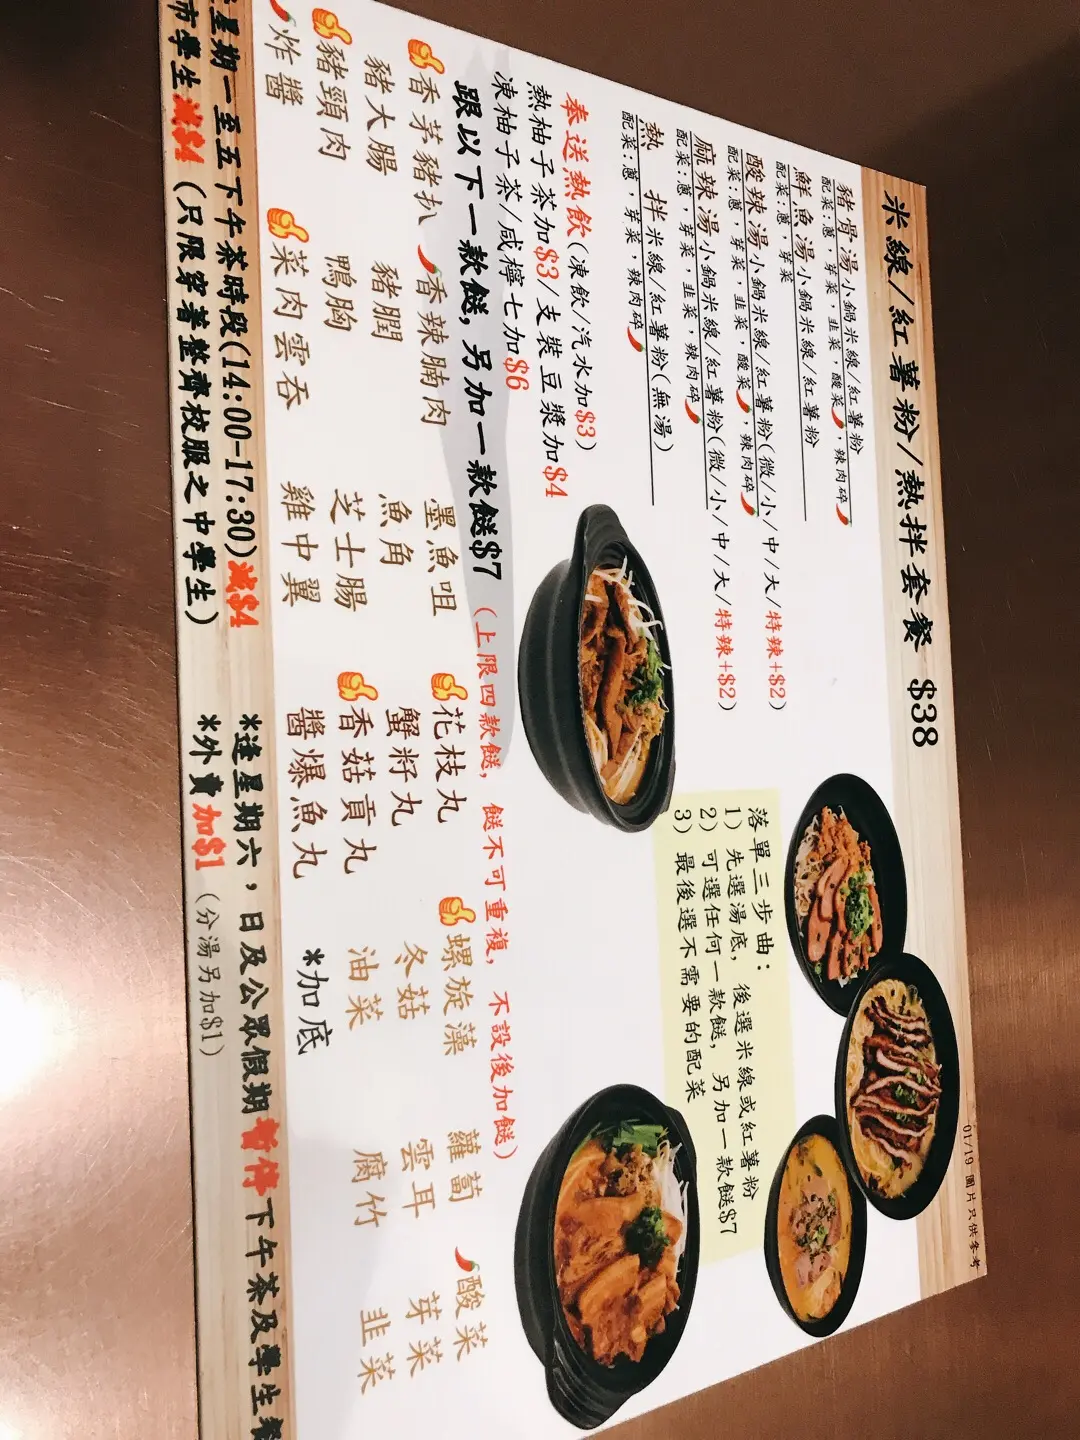 米線/紅薯粉/熱拌套餐 $38
豬骨湯小鍋米線/紅薯粉
配菜:蔥，芽菜，韭菜，酸菜，辣肉碎
鮮魚湯小鍋米線/紅薯粉
配菜:蔥，芽菜
酸辣湯小鍋米線/紅薯粉(微/小/中/大/特辣+$2)
配菜:蔥，芽菜，韭菜，酸菜，辣肉碎
麻辣湯小鍋米線/紅薯粉(微/小/中/大/特辣+$2)
配菜:蔥，芽菜，韭菜，辣肉碎
熱 拌米線/紅薯粉(無湯)
配菜:蔥，芽菜，辣肉碎
落單三步曲:
1) 先選湯底，後選米線或紅薯粉
2) 可選任何一款餸，另加一款餸$7
3) 最後選不需要的配菜
奉送熱飲(凍飲/汽水加$3)
熱柚子茶加$3/支裝豆漿加$4
凍柚子茶/咸檸七加$6
跟以下一款餸，另加一款餸$7 (上限四款餸，餸不可重複，不設後加餸)
香茅豬扒 香辣腩肉 墨魚咀 花枝丸 螺旋藻 蘿蔔 酸菜
豬大腸 豬膶 魚角 蟹籽丸 冬菇 雲耳 芽菜
豬頸肉 鴨胸 芝士腸 香菇貢丸 油菜 腐竹 韭菜
炸醬 菜肉雲吞 雞中翼 醬爆魚丸 *加底
星期一至五下午茶時段(14:00-17:30)減$4 *逢星期六，日及公眾假期暫停下午茶及學生餐
市學生減$4 (只限穿著整齊校服之中學生) *外賣加$1 (分湯另加$1)
01/19 圖片只供參考